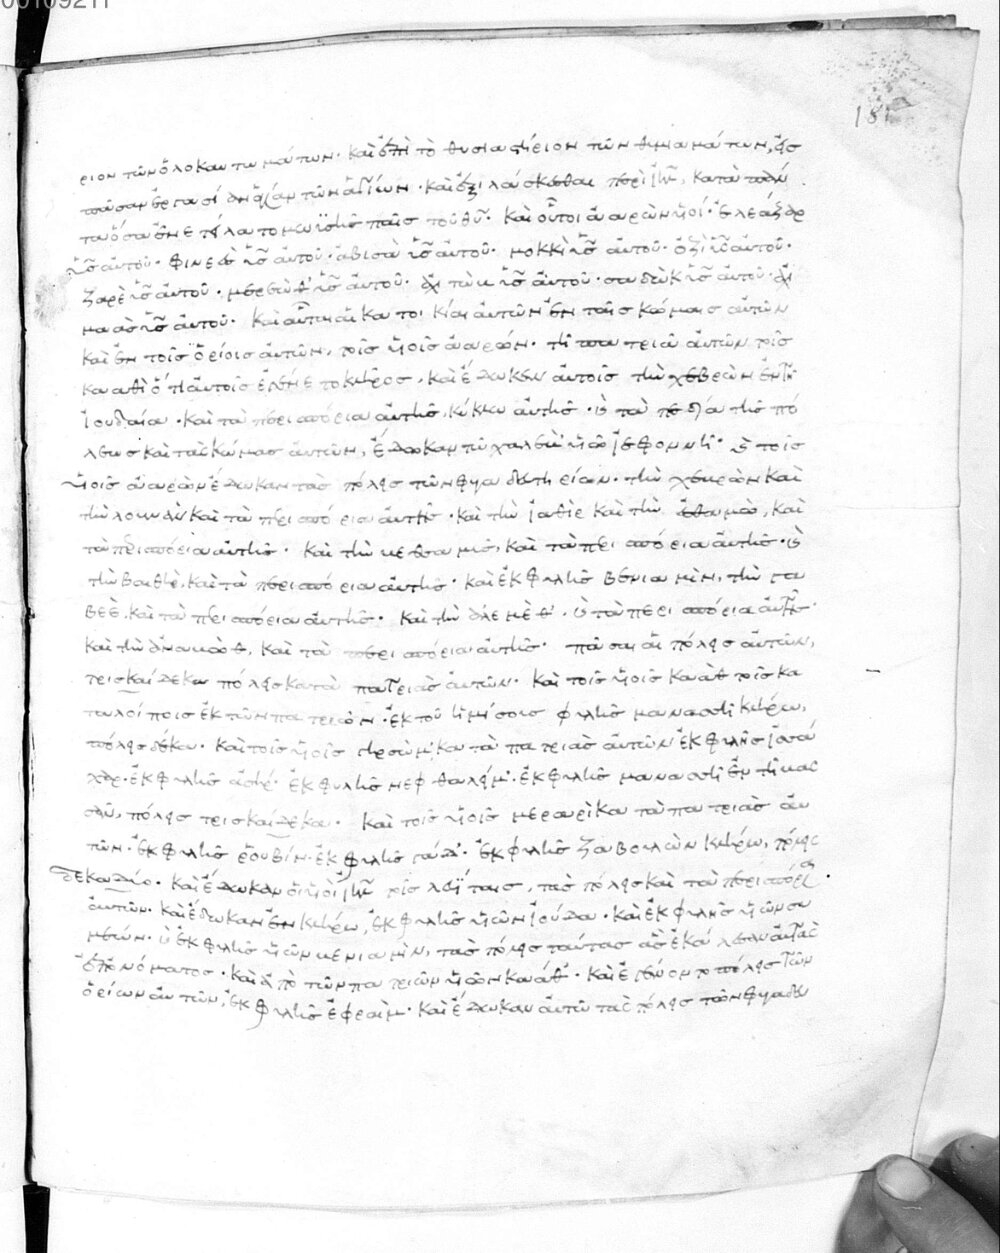 00109211
181
ριον τῶν ὁλοκαυτωμάτων· καὶ ἐπὶ τὸ θυσιαστήριον τῶν θυμιαμάτων, εἰς
πᾶσαν ἐργασίαν ἅγια τῶν ἁγίων· καὶ ἐξιλάσκεσθαι περὶ ιηλ, κατὰ πάντα
τα ὅσα ἐνετείλατο μωϋσῆς παῖς τοῦ θυ· Καὶ οὗτοι ἀαρὼν υἱοί· ἐλεάζαρ
υἱὸς αὐτοῦ· φινεὲς υἱὸς αὐτοῦ· ἀβισαὲ υἱὸς αὐτοῦ· μοκκὶ υἱὸς αὐτοῦ· ὀζὶ υἱὸς αὐτοῦ·
ζαρὲ υἱὸς αὐτοῦ· υἱὸς αὐτοῦ· υἱὸς αὐτοῦ· σαδὼκ υἱὸς αὐτοῦ· ἀχι
μαὰς υἱὸς αὐτοῦ· Καὶ αὗται αἱ κατοικίαι αὐτῶν ἐν ταῖς κώμαις αὐτῶν
καὶ ἐν τοῖς ὁρίοις αὐτῶν, τοῖς υἱοῖς ἀαρών· τῆ πατριᾶ αὐτῶν τοῖς
κααθὶ ὅτι αὐτοῖς ἐγένετο κλῆρος, καὶ ἔδωκαν αὐτοῖς τὴν χεβρὼν ἐν γῆ
ἰουδαία· καὶ τὰ περισπόρια αὐτῆς, κύκλω αὐτῆς· καὶ τὰ πεδία τῆς πό
λεως καὶ τὰς κώμας αὐτῶν, ἔδωκαν τῶ χαλεὺ υἱῶ ἰεφοννῆ· καὶ τοῖς
υἱοῖς ἀαρὼν ἔδωκαν τὰς πόλεις τῶν φυγαδευτηρίων· τὴν χευρὼν καὶ
τὴν λομνὰν καὶ τὰ περισπόρια αὐτῆς· καὶ τὴν ἰαθὶρ καὶ τὴν ἐσθαμὼ, καὶ
τὰ περισπόρια αὐτῆς· καὶ τὴν καὶ τὰ περισπόρια αὐτῆς· καὶ
τὴν καὶ τὰ περισπόρια αὐτῆς· καὶ ἐκ φυλῆς βενιαμὶν, τὴν γα
βεὲ, καὶ τὰ περισπόρια αὐτῆς· καὶ τὴν καὶ τὰ περισπόρια αὐτῆς·
καὶ τὴν ἀναθὼθ, καὶ τὰ περισπόρια αὐτῆς· πᾶσαι αἱ πόλεις αὐτῶν,
τρισκαίδεκα πόλεις κατὰ πατριὰς αὐτῶν· καὶ τοῖς υἱοῖς καὰθ τοῖς κα
ταλοίποις ἐκ τῶν πατριῶν· ἐκ τοῦ ἡμίσους φυλῆς μανασσῆ κλήρω,
πόλεις δέκα· καὶ τοῖς υἱοῖς γηρσὼμ κατὰ πατριὰς αὐτῶν ἐκ φυλῆς ἰσσά
χαρ· ἐκ φυλῆς ἀσήρ· ἐκ φυλῆς νεφθαλείμ· ἐκ φυλῆς μανασσῆ ἐν τῆ βασ
άν, πόλεις τρισκαίδεκα· καὶ τοῖς υἱοῖς μεραρὶ κατὰ πατριὰς αὐ
τῶν· ἐκ φυλῆς ῥουβίν· ἐκ φυλῆς γάδ· ἐκ φυλῆς ζαβουλὼν κλήρω, πόλεις
δεκαδύο· καὶ ἔδωκαν οἱ υἱοὶ ιηλ τοῖς λευίταις, τὰς πόλεις καὶ τὰ περισπόρια
αὐτῶν· καὶ ἔδωκαν ἐν κλήρω, ἐκ φυλῆς υἱῶν ἰούδα· καὶ ἐκ φυλῆς υἱῶν συ
μεών· καὶ ἐκ φυλῆς υἱῶν βενιαμὶν, τὰς πόλεις ταύτας ἃς ἐκάλεσαν αὐτὰς
ἐπ' ὀνόματος· καὶ ἀπὸ τῶν πατριῶν υἱῶν καάθ· καὶ ἐγένοντο πόλεις τῶν
ὁρίων αὐτῶν, ἐκ φυλῆς ἐφραίμ· καὶ ἔδωκαν αὐτῶ τὰς πόλεις τῶν φυγαδευ